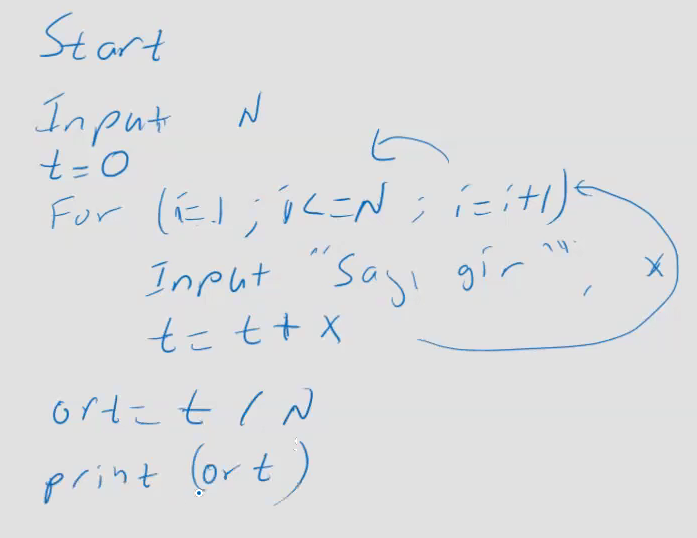 Start
Input N
t=0
For (i=1 ; i<=N ; i=i+1)
Input "Sayı gir", x
t= t+x
ort= t / N
print (ort)